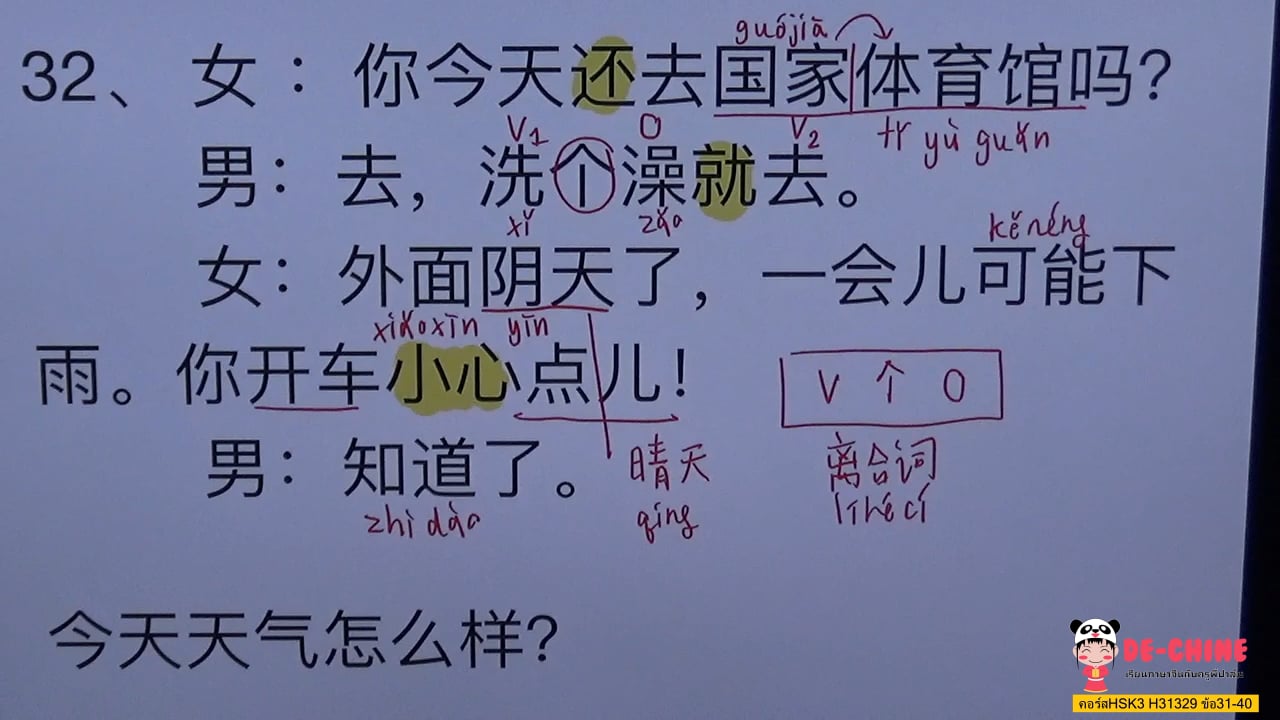 guójiā
32、 女： 你今天还去国家体育馆吗？
V1 O V2 tǐ yù guǎn
男： 去， 洗个澡就去。
xǐ zǎo kěnéng
女： 外面阴天了， 一会儿可能下
xiǎoxīn yīn
雨。你开车小心点儿！ V 个 O
男： 知道了。 晴天 离合词
zhì dào qíng lí hé cí
今天天气怎么样？
DE-CHINE
เรียนภาษาจีนกับครูพี่ป่าน
คอร์สHSK3 H31329 ข้อ31-40